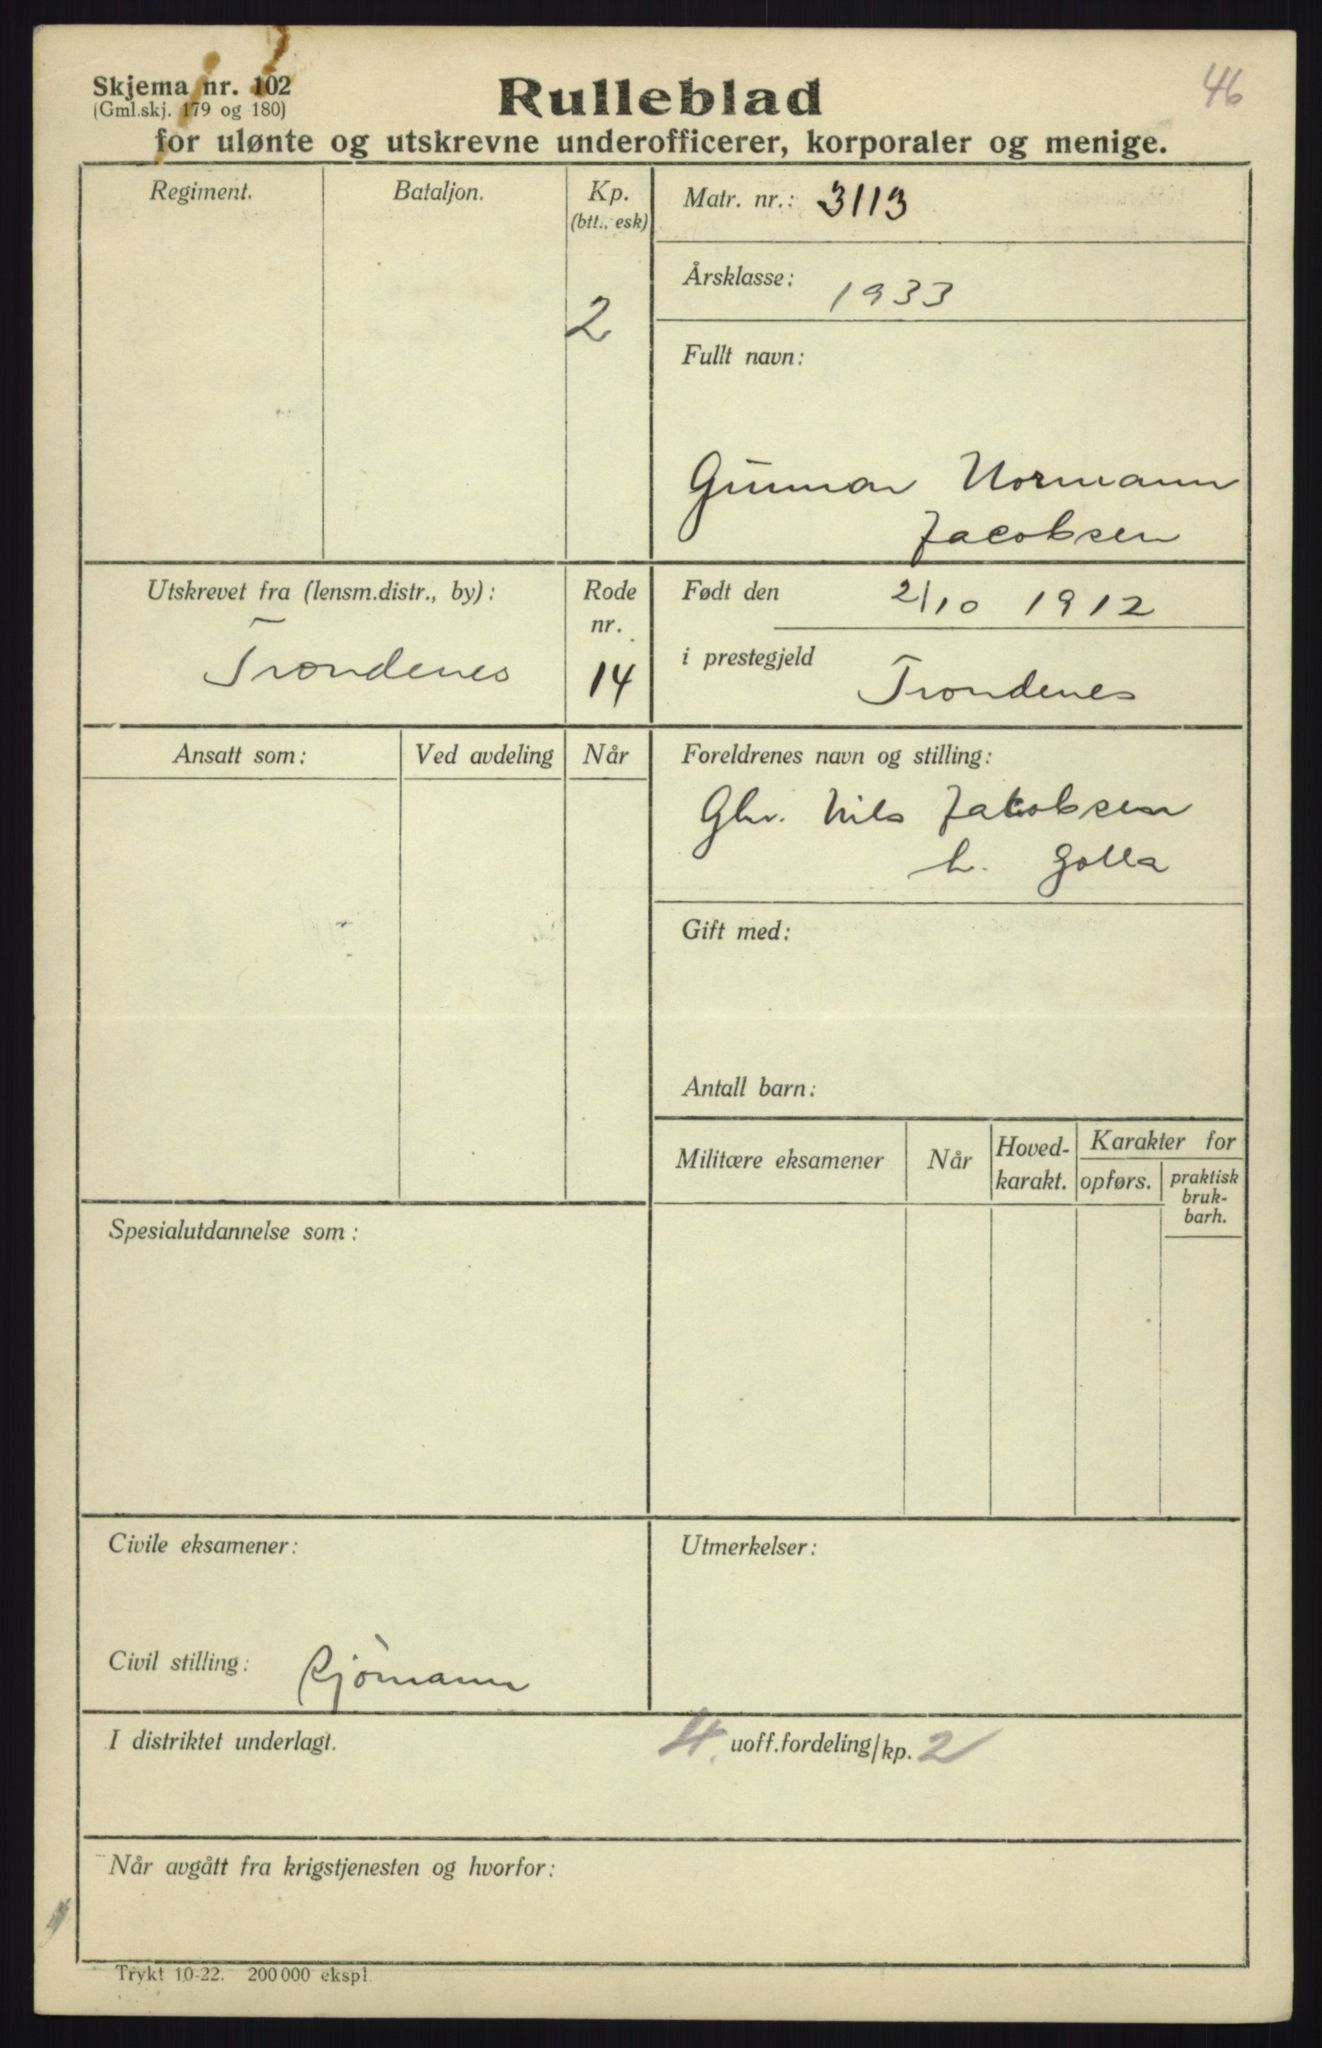 46
Skjema nr. 102
(Gml.skj. 179 og 180)
Rulleblad
for ulønte og utskrevne underofficerer, korporaler og menige.
Regiment.
Bataljon.
Kp.
(btt., esk)
2
Matr. nr.: 3113
Årsklasse: 1933
Fullt navn:
Gunnar Normann
Jacobsen
Utskrevet fra (lensm.distr., by):
Trondenes
Rode
nr.
14
Født den 2/10 1912
i prestegjeld Trondenes
Ansatt som:
Ved avdeling
Når
Foreldrenes navn og stilling:
Gbr. Nils Jakobsen
h. Golla
Gift med:
Antall barn:
Militære eksamener
Når
Hoved-
karakt.
Karakter for
opførs.
praktisk
bruk-
barh.
Spesialutdannelse som:
Civile eksamener:
Civil stilling: Sjömann
Utmerkelser:
I distriktet underlagt.
4. uoff.fordeling/kp. 2
Når avgått fra krigstjenesten og hvorfor:
Trykt 10-22. 200 000 ekspl.